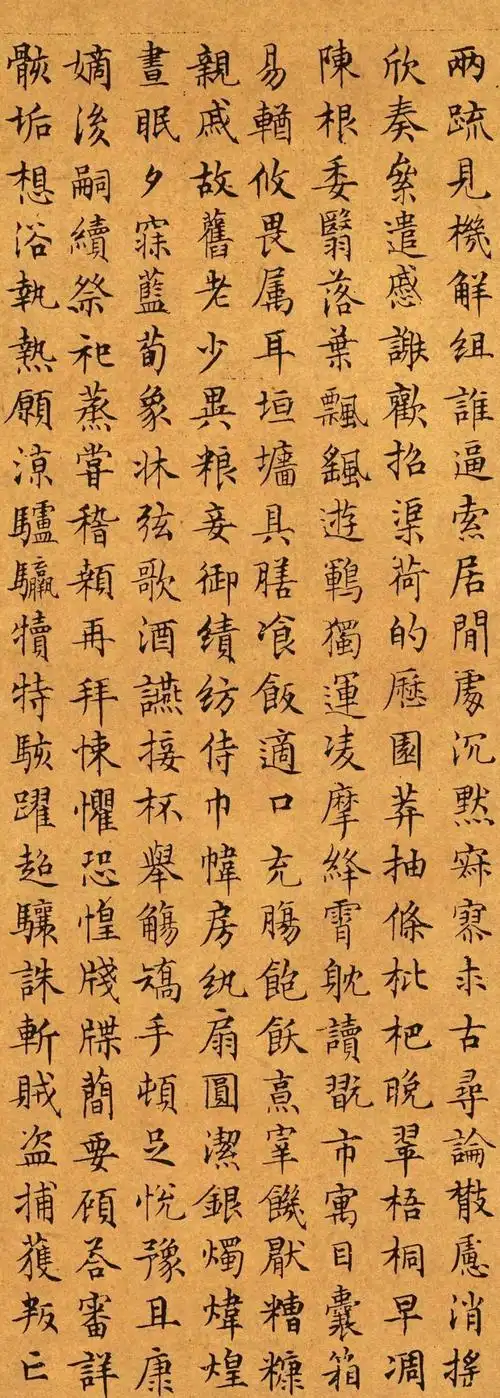 兩疏見機解組誰逼索居閒處沉默寂寥求古尋論散慮消搖
欣奏累遣慼謝歡招渠荷的歷園莽抽條枇杷晚翠梧桐早凋
陳根委翳落葉飄颻遊鵾獨運凌摩絳霄耽讀翫市寓目囊箱
易輶攸畏属耳垣墻具膳飡飯適口充腸飽飫烹宰饑厭糟糠
親戚故舊老少異粮妾御績紡侍巾幃房紈扇圓潔銀燭煒煌
晝眠夕寐藍荀象牀弦歌酒讌接杯舉觴矯手頓足悅豫且康
嫡後嗣續祭祀蒸嘗稽顙再拜悚懼恐惶牋牒簡要顧答審詳
骸垢想浴執熱願涼驢騾犢特駭躍超驤誅斬賊盜捕獲叛亡